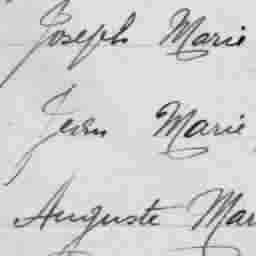 Joseph Marie
Jean Marie
Auguste Mar